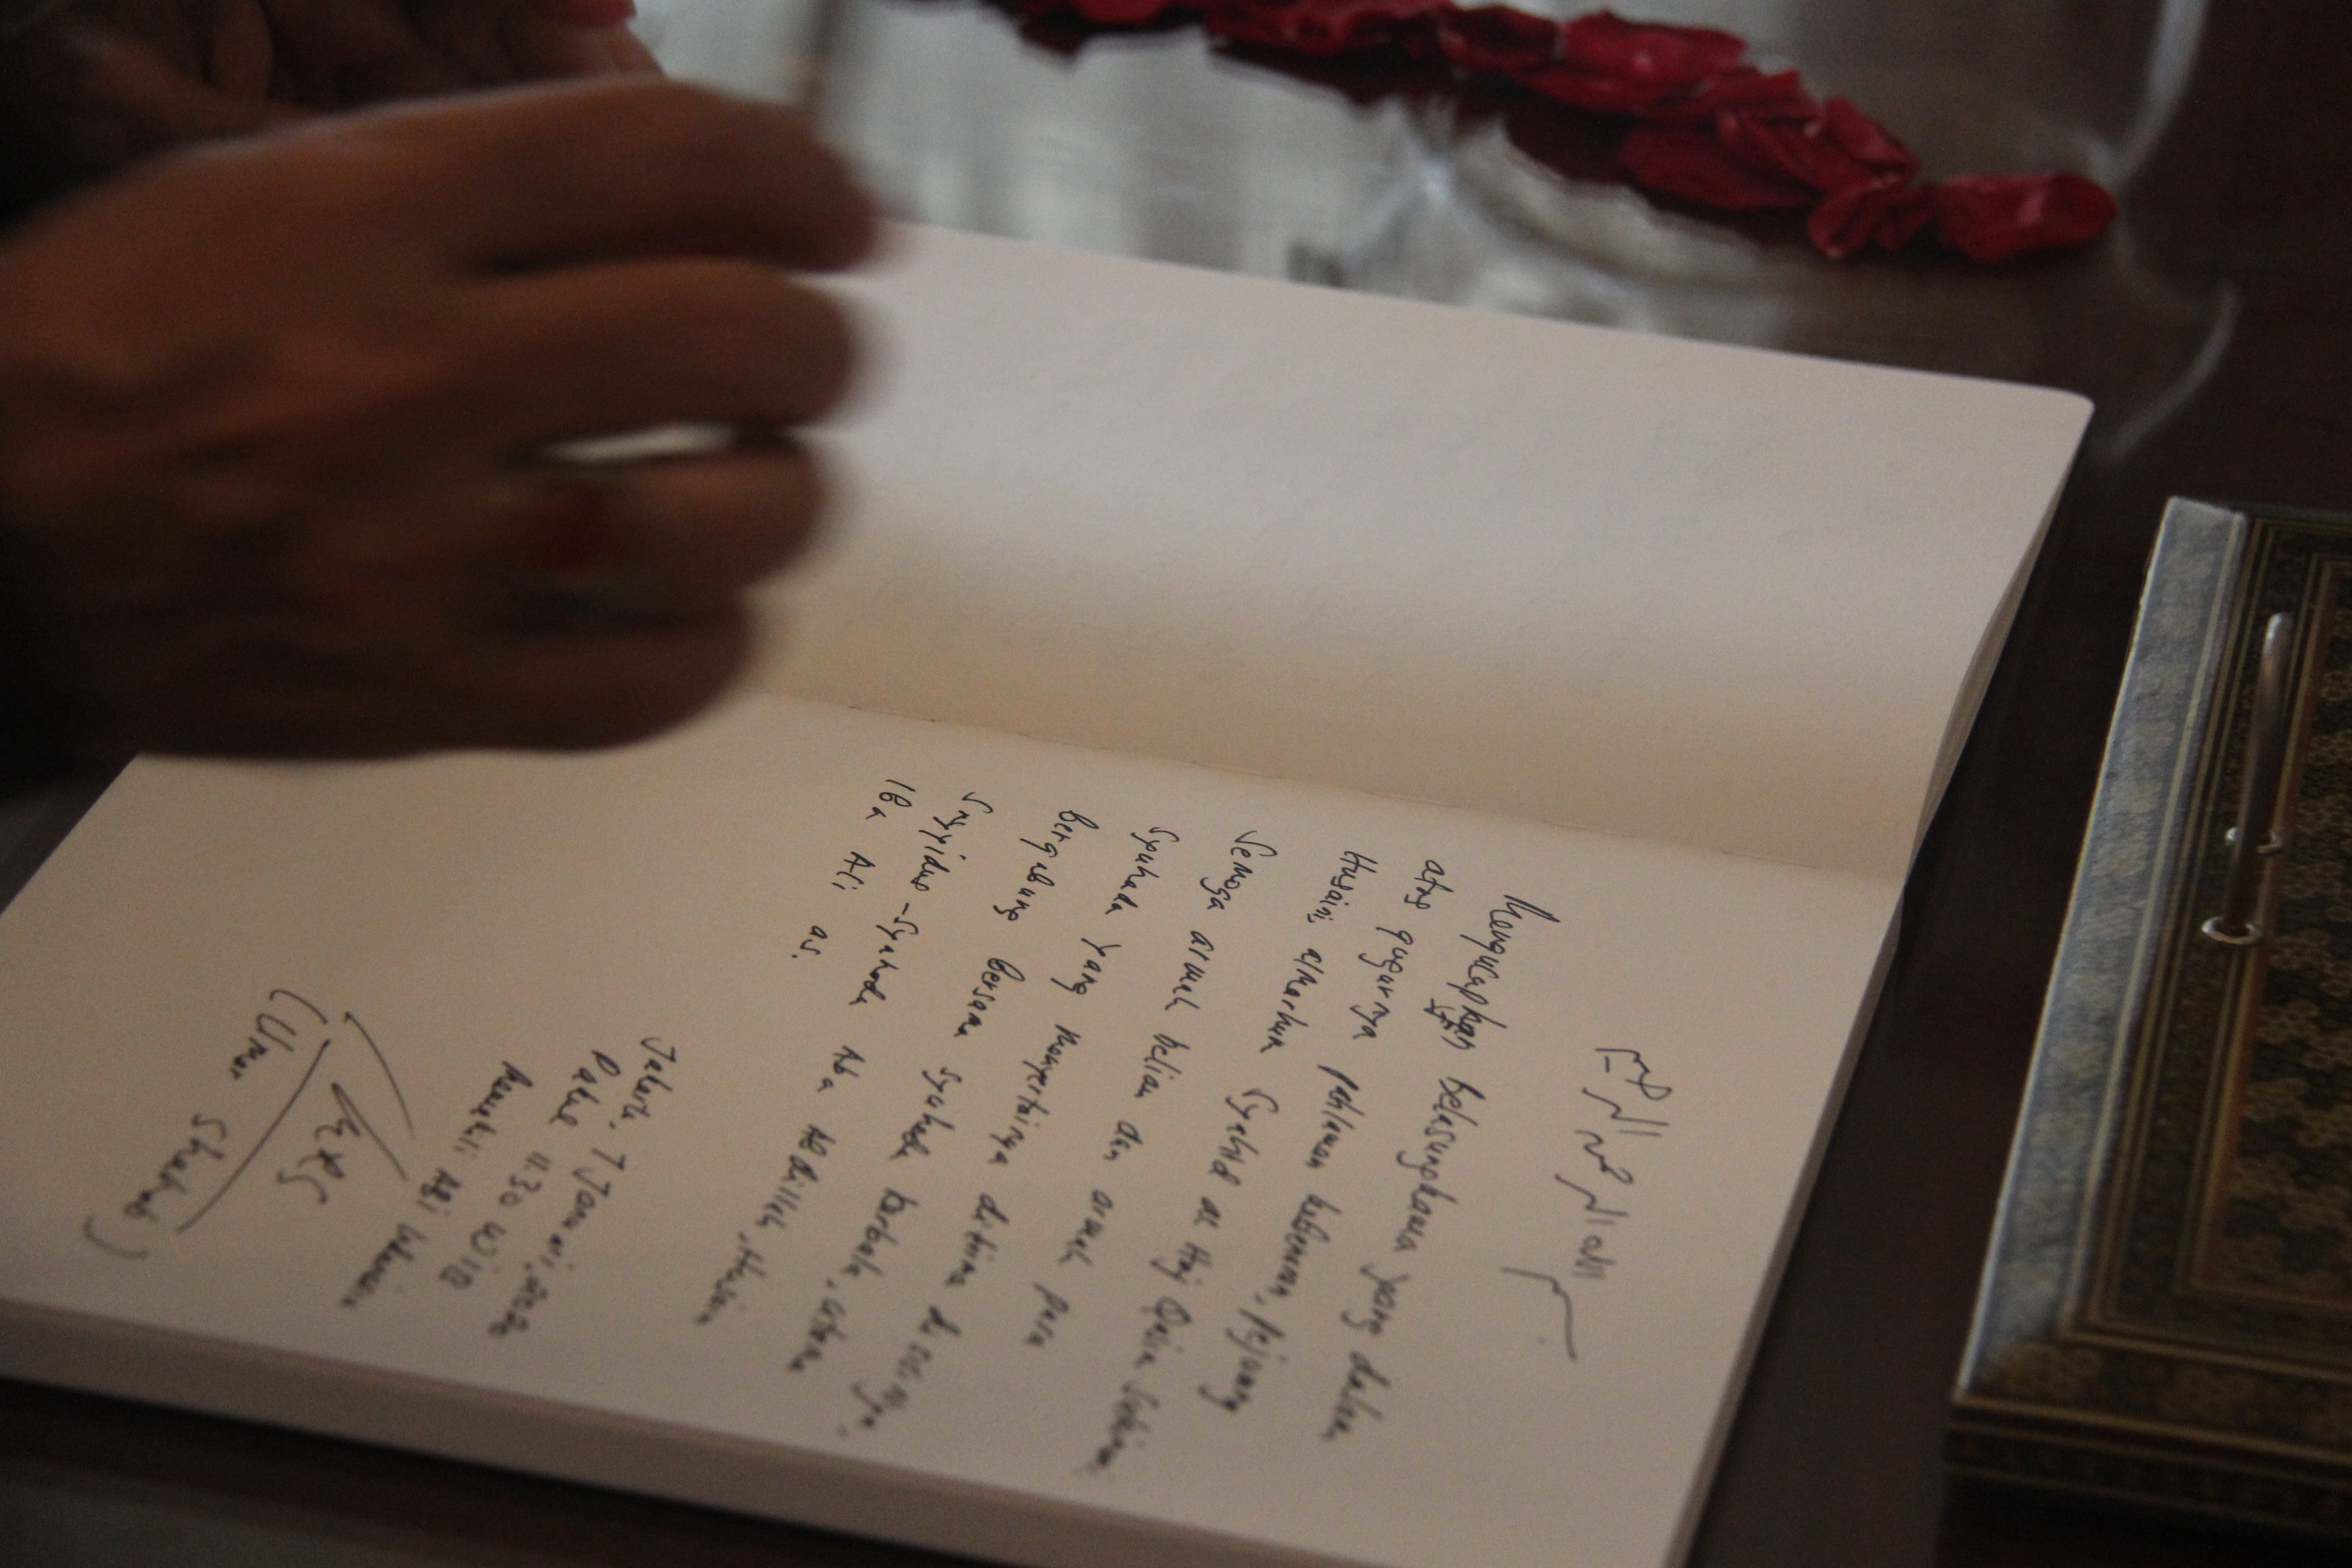 بسم الله الرحمن الرحيم
Mengucapkan belasungkawa yang dalam
atas gugurnya pahlawan kebenaran, pejuang
Husaini, almarhum Syahid al Haj Qasim Sulaimani
Semoga arwah beliau dan arwah para
Syuhada yang menyertainya diterima disisinya,
Bergabung bersama syuhada karbala, utama
Sayyidus-Syuhada Aba Abdillah, Husein
Ibn Ali as.
Jakarta, 7 Januari, 2020
Pukul 11.30 WIB
(Umar Shahab)